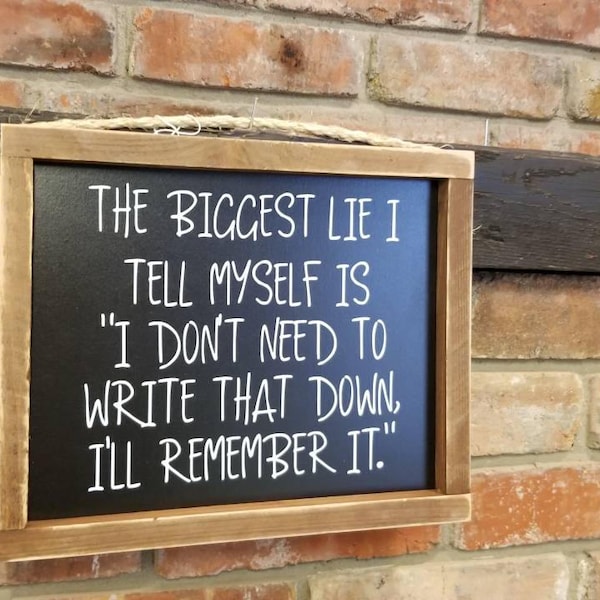 THE BIGGEST LIE I
TELL MYSELF IS
"I DON'T NEED TO
WRITE THAT DOWN,
I'LL REMEMBER IT."